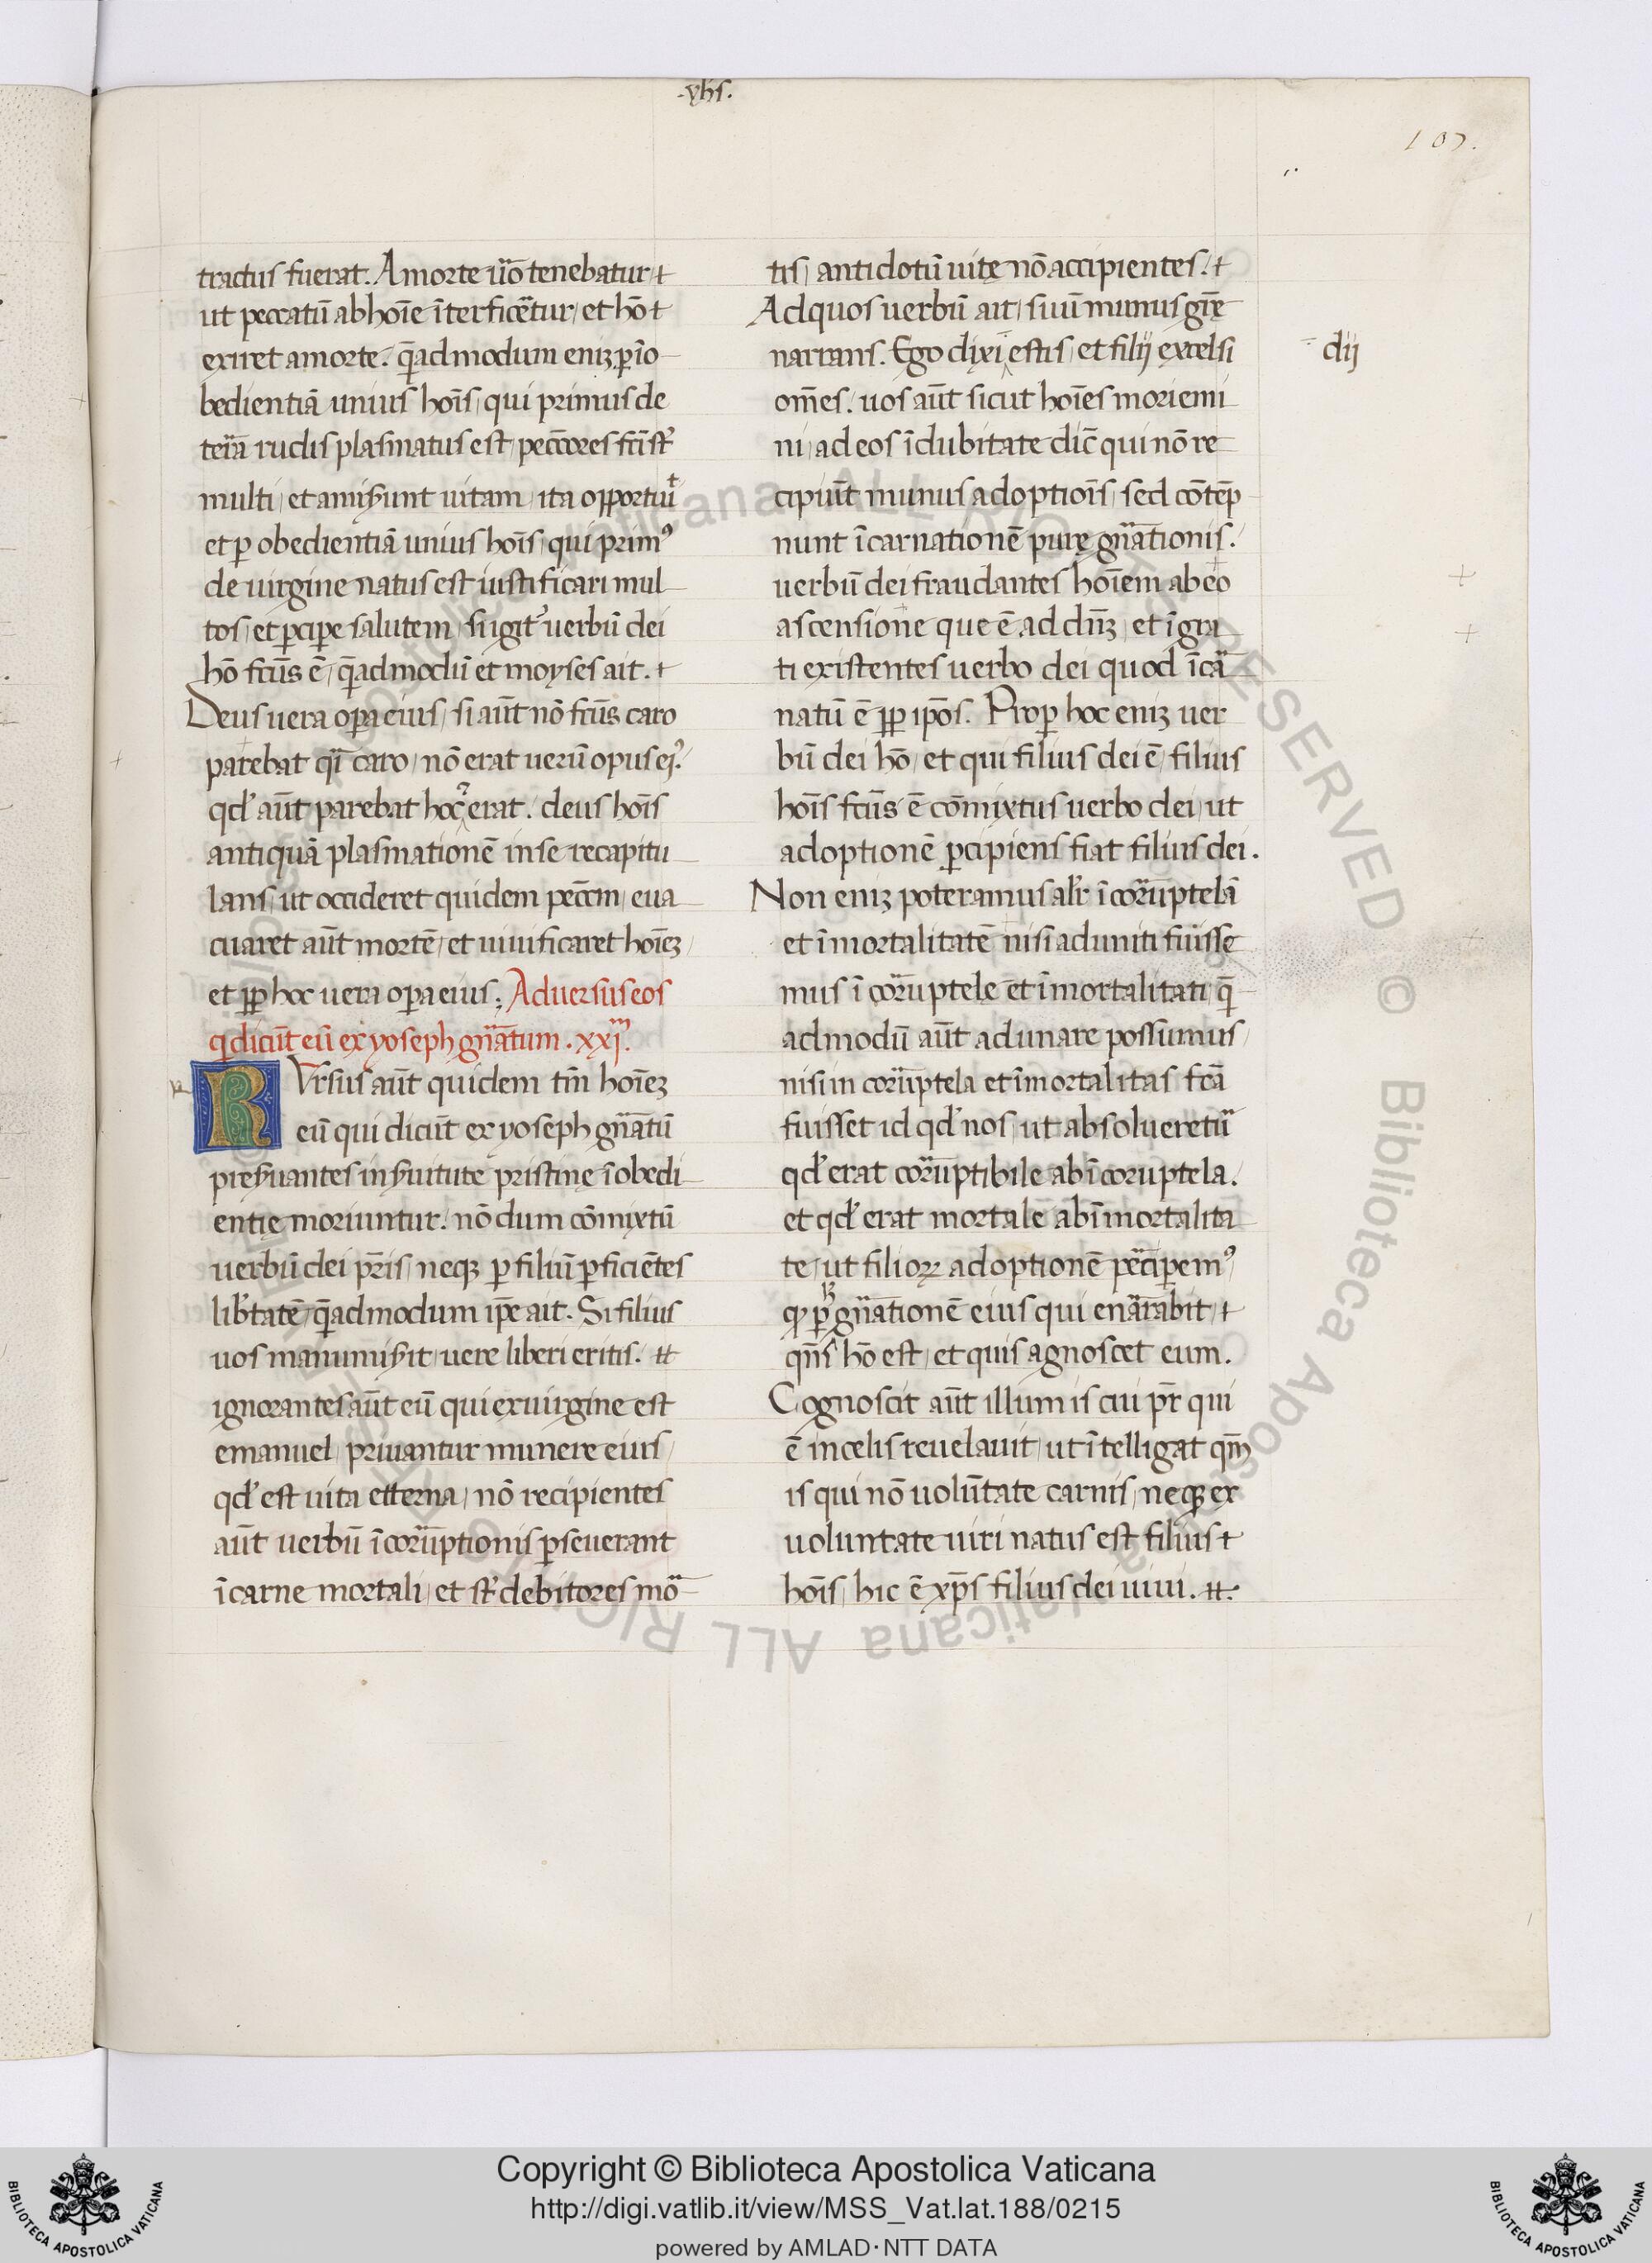 .yhs.
107.
tractus fuerat. A morte u͞o tenebatur
ut peccatū ab ho͞ie īterficēt̄ur, et hō
exiret a morte. q̄ad modum eniꝫ ꝑ īo
bedientiā unius ho͞is, qui primus de
ter̄a rudis plasmatus est, pecc̄ores fc̄i st̄
multi, et amiserunt uitam, ita opportuit
et ꝑ obedientiā unius ho͞is, qui primꝰ
de uirgine natus est iustificari mul
tos, et ꝑciꝑe salutem, si igit᷑ uerbū dei
hō fc̄us ē, q̄ad modū et moyses ait.
Deus uera oꝑa eius, si aūt nō fc̄us caro
parebat q̄i caro, nō erat uerū opus eiꝰ.
qđ aūt parebat hoc erat. deus ho͞is
antiquā plasmationē in se recapitu
lans, ut occideret quidem pecc̄m, eua
cuaret aūt mortē, et uiuificaret ho͞ieꝫ,
et ꝓꝑ hoc uera oꝑa eius; Aduersus eos
q̄ dicūt eū ex yoseph gn̄atum . xxi.
RVrsus aūt quidem tm̄ ho͞ieꝫ
eū qui dicūt ex yoseph gn̄atū
preseruantes in seruitute pristinę īobedi
entię moriuntur. nō dum cōmixtū
uerbū dei pr̄is, neqꝫ ꝑ filiū ꝑficiētes
lib̄tatē, q̄ad modum ip̄e ait. Si filius
uos manumiserit, uere liberi eritis.
ignorantes aūt eū qui ex uirgine est
emanuel, priuantur munere eius,
qđ est uita etterna, nō recipientes
aūt uerbū īcorūptionis ꝑseuerant
ī carne mortali, et st̄ debitores mo͞
tis, antidotū uitę nō accipientes.
Ad quos uerbū ait, suū munus gr̄ę
narrans. Ego dixi estis, et filij excelsi
dij
om̄es. uos aūt sicut ho͞ies moriemi
ni, ad eos īdubitate dic̄ qui nō re
cipiūt munus adoptio͞is, sed cōtēp
nunt īcarnationē purę gn̄ationis.
uerbū dei fraudantes ho͞iem ab eo
ascensione que ē ad dn̄ꝫ, et īgra
ti existentes uerbo dei quod īcar̄
natū ē ꝓꝑ ip̄os. Proꝑ hoc eniꝫ uer
bū dei hō, et qui filius dei ē, filius
ho͞is fc̄us ē cōmixtus uerbo dei, ut
adoptionē ꝑcipiens fiat filius dei.
Non eniꝫ poteramus alr̄ īcorūptelā
et īmortalitatē nisi aduniti fuisse
mus īcorūptele et īmortalitati, q̄
ad modū aūt adunare possumus,
nisi in corūptela et īmortalitas fc̄a
fuisset id qđ nos, ut absolueret̄u
qđ erat corūptibile ab īcoruptela.
et qđ erat mortale ab īmortalita
te, ut filioꝝ adoptionē pēciꝑemꝰ,
gn̄ationē eius qui enar̄abit,
qn̄s hō est, et quis agnoscet eum.
Cognoscit aūt illum is cui pr̄ qui
ē in celis reuelauit, ut ītelligat qm̄
is qui nō uolūtate carnis, neqꝫ ex
uoluntate uiri natus est filius
ho͞is, hic ē xp̄s filius dei uiui.
Copyright © Biblioteca Apostolica Vaticana
http://digi.vatlib.it/view/MSS_Vat.lat.188/0215
powered by AMLAD·NTT DATA